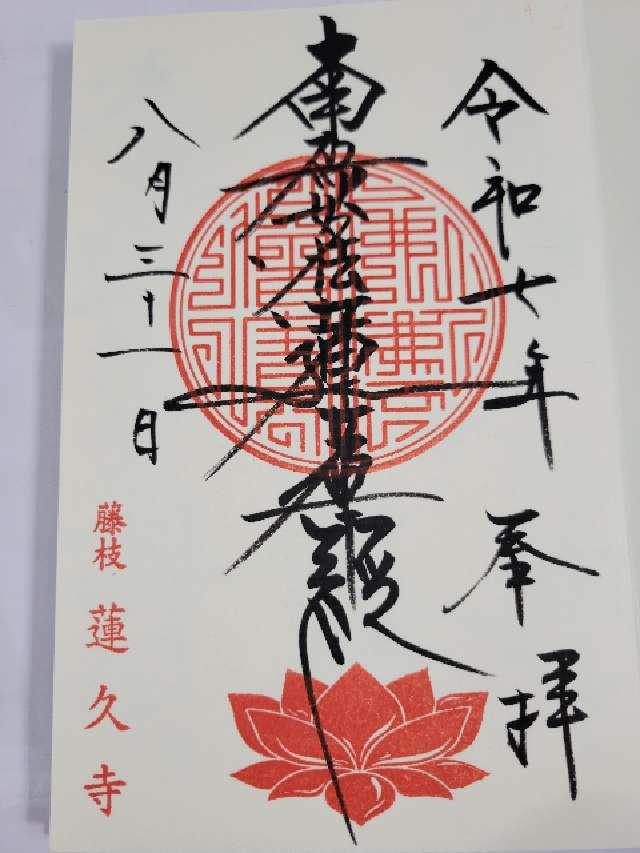 令和七年 奉拝
南無妙法蓮華経
八月三十一日
藤枝 蓮久寺